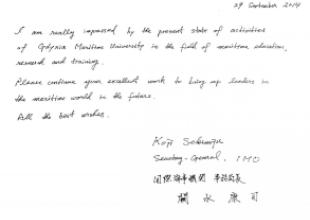 29 September 2014
I am really impressed by the present state of activities
of Gdynia Maritime University in the field of maritime education,
research and training.
Please continue your excellent work to bring up leaders in
the maritime world in the future.
All the best wishes.
Koji Sekimizu
Secretary-General, IMO
国際海事機関 事務局長
関水康司